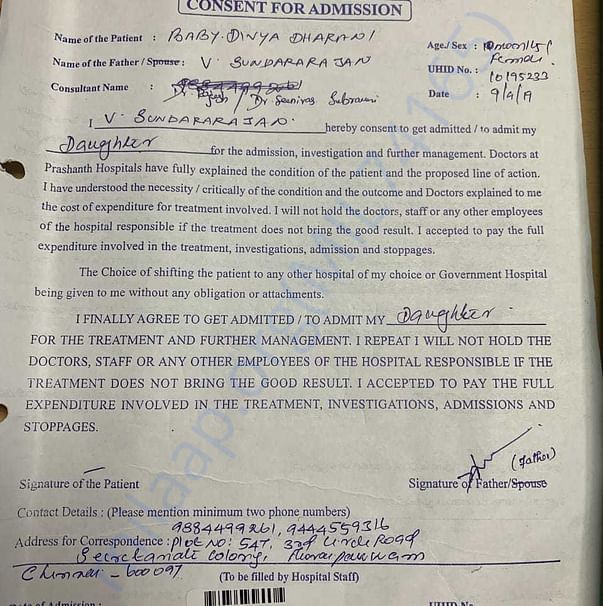 CONSENT FOR ADMISSION
Name of the Patient : BABY. DIVYA DHARANI
Age./ Sex : Female
Name of the Father / Spouse : V. SUNDARARAJAN
UHID No. : 10195233
Consultant Name : 9884499261
Dr. / Dr
Date : 9/9/19
I V. SUNDARARAJAN. hereby consent to get admitted / to admit my
Daughter for the admission, investigation and further management. Doctors at
Prashanth Hospitals have fully explained the condition of the patient and the proposed line of action.
I have understood the necessity / critically of the condition and the outcome and Doctors explained to me
the cost of expenditure for treatment involved. I will not hold the doctors, staff or any other employees
of the hospital responsible if the treatment does not bring the good result. I accepted to pay the full
expenditure involved in the treatment, investigations, admission and stoppages.
The Choice of shifting the patient to any other hospital of my choice or Government Hospital
being given to me without any obligation or attachments.
I FINALLY AGREE TO GET ADMITTED / TO ADMIT MY Daughter
FOR THE TREATMENT AND FURTHER MANAGEMENT. I REPEAT I WILL NOT HOLD THE
DOCTORS, STAFF OR ANY OTHER EMPLOYEES OF THE HOSPITAL RESPONSIBLE IF THE
TREATMENT DOES NOT BRING THE GOOD RESULT. I ACCEPTED TO PAY THE FULL
EXPENDITURE INVOLVED IN THE TREATMENT, INVESTIGATIONS, ADMISSIONS AND
STOPPAGES.
(Father)
Signature of the Patient
Signature of Father/Spouse
Contact Details : (Please mention minimum two phone numbers)
9884499261, 9444559316
Address for Correspondence : Plot NO: 547, 3rd Circle Road
Secretariate Colony,
Chennai - 600097
(To be filled by Hospital Staff)
of Admission :
UHID No